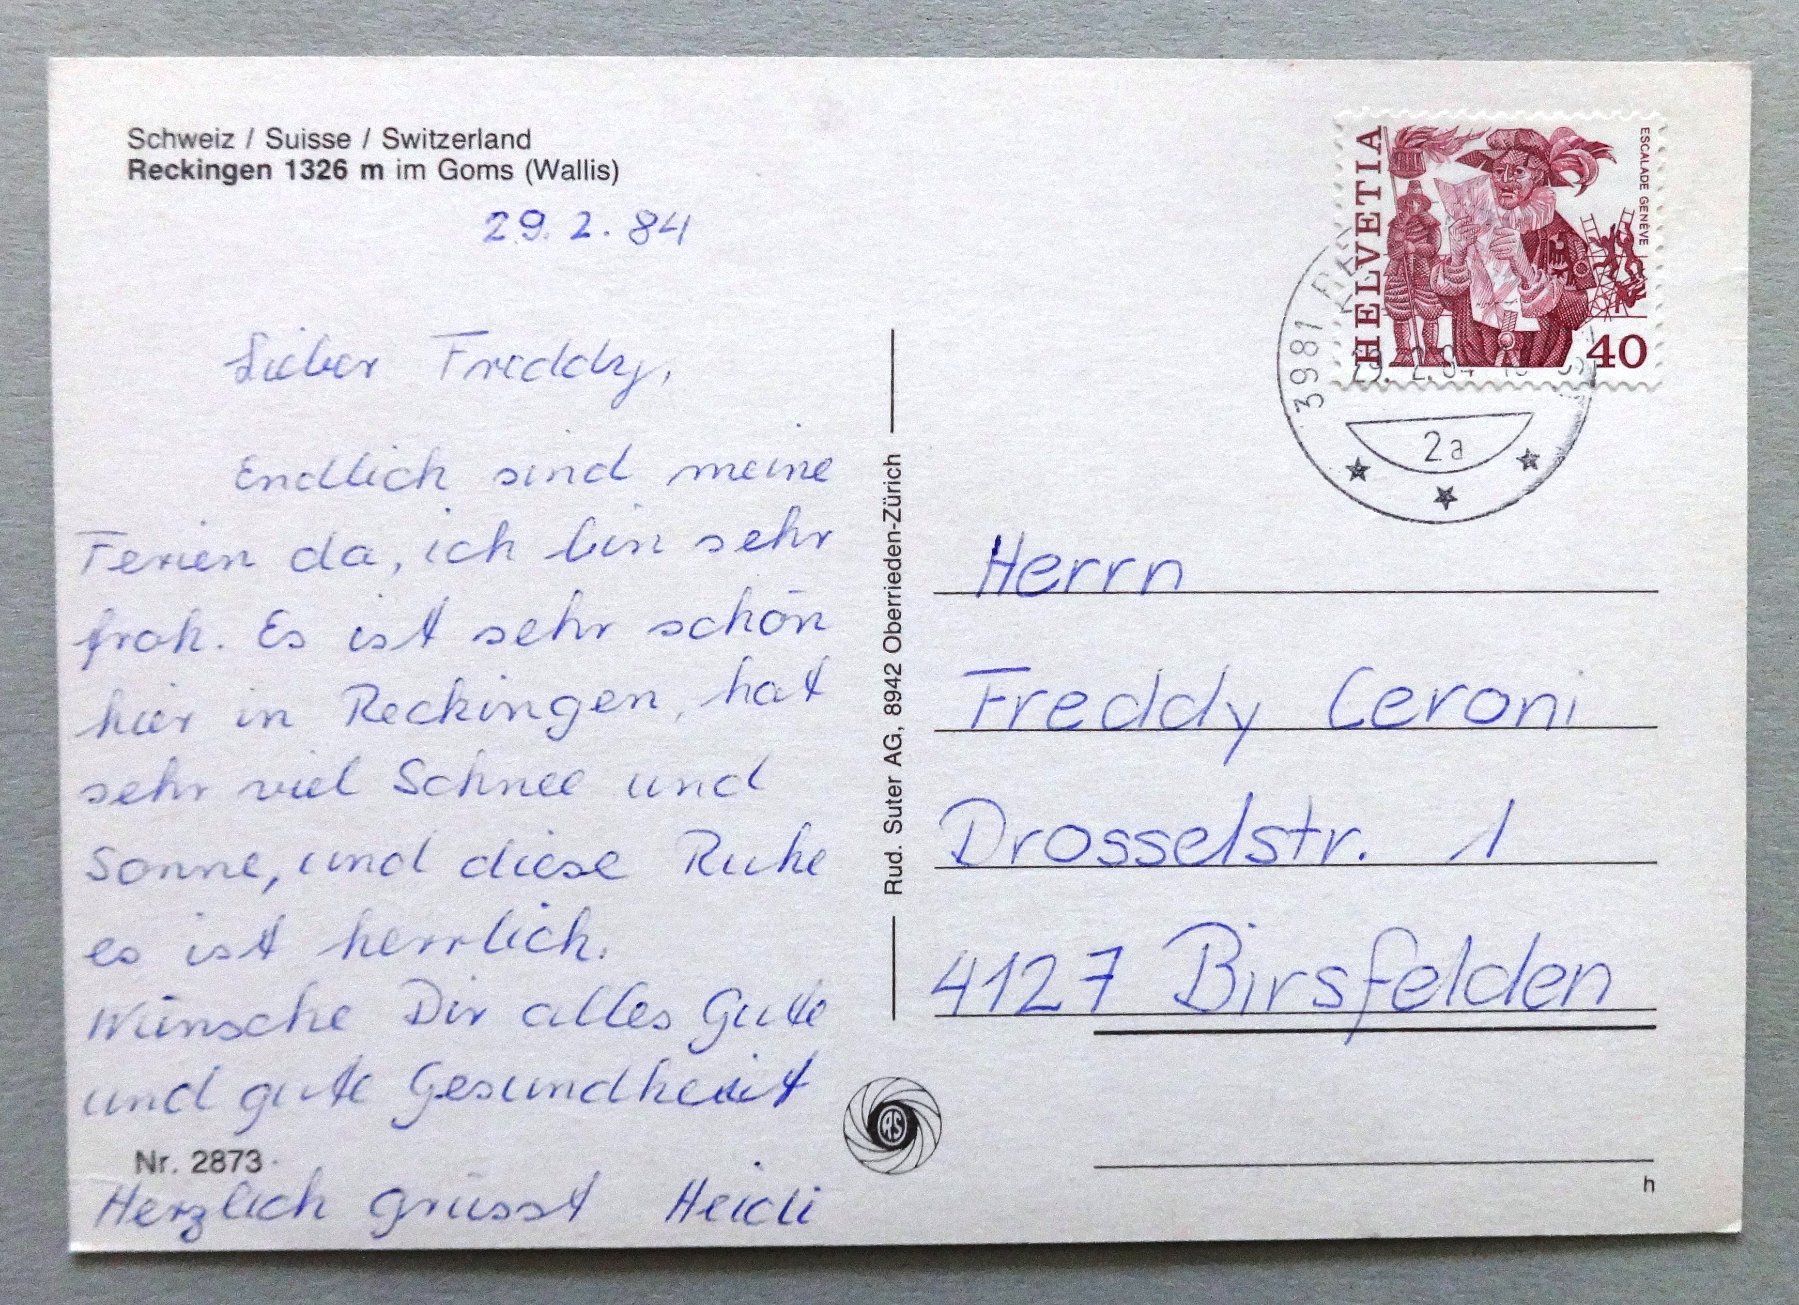 Schweiz / Suisse / Switzerland
Reckingen 1326 m im Goms (Wallis)
29. 2. 84
Lieber Freddy,
Endlich sind meine
Ferien da, ich bin sehr
froh. Es ist sehr schön
hier in Reckingen, hat
sehr viel Schnee und
Sonne, und diese Ruhe
es ist herrlich.
Wünsche Dir alles Gute
und gute Gesundheit
Nr. 2873
Herzlich grüsst Heidi
Rud. Suter AG, 8942 Oberrieden-Zürich
RS
HELVETIA
ESCALADE GENÈVE
40
3981
29. 2. 84
2a
Herrn
Freddy Ceroni
Drosselstr. 1
4127 Birsfelden
h